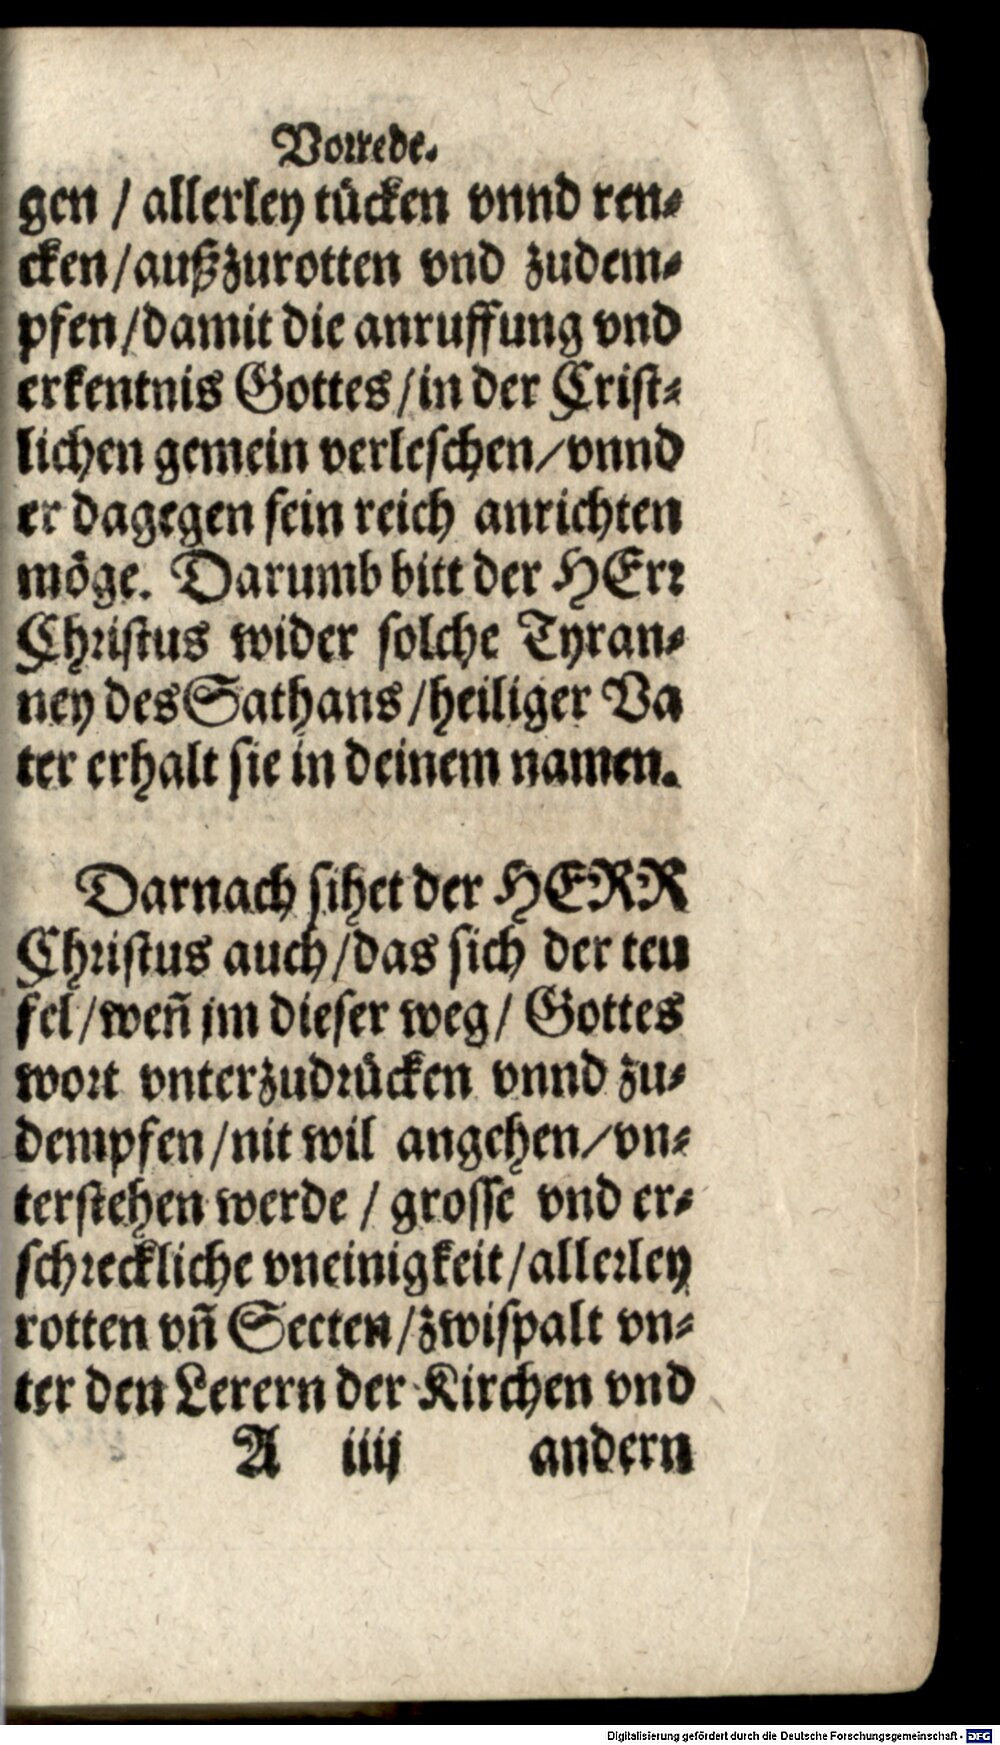 Vorrede.
gen / allerley tücken vnnd ren-
cken / außzurotten vnd zudem-
pfen / damit die anruffung vnd
erkentnis Gottes / in der Crist-
lichen gemein verleschen / vnnd
er dagegen sein reich anrichten
möge. Darumb bitt der HErr
Christus wider solche Tyran-
ney des Sathans / heiliger Va
ter erhalt sie in deinem namen.
Darnach sihet der HERR
Christus auch / das sich der teu
fel / weñ jm dieser weg / Gottes
wort vnterzudrücken vnnd zu-
dempfen / nit wil angehen / vn-
terstehen werde / grosse vnd er-
schreckliche vneinigkeit / allerley
rotten vñ Secten / zwispalt vn-
ter den Lerern der Kirchen vnd
A iiij andern
Digitalisierung gefördert durch die Deutsche Forschungsgemeinschaft - DFG